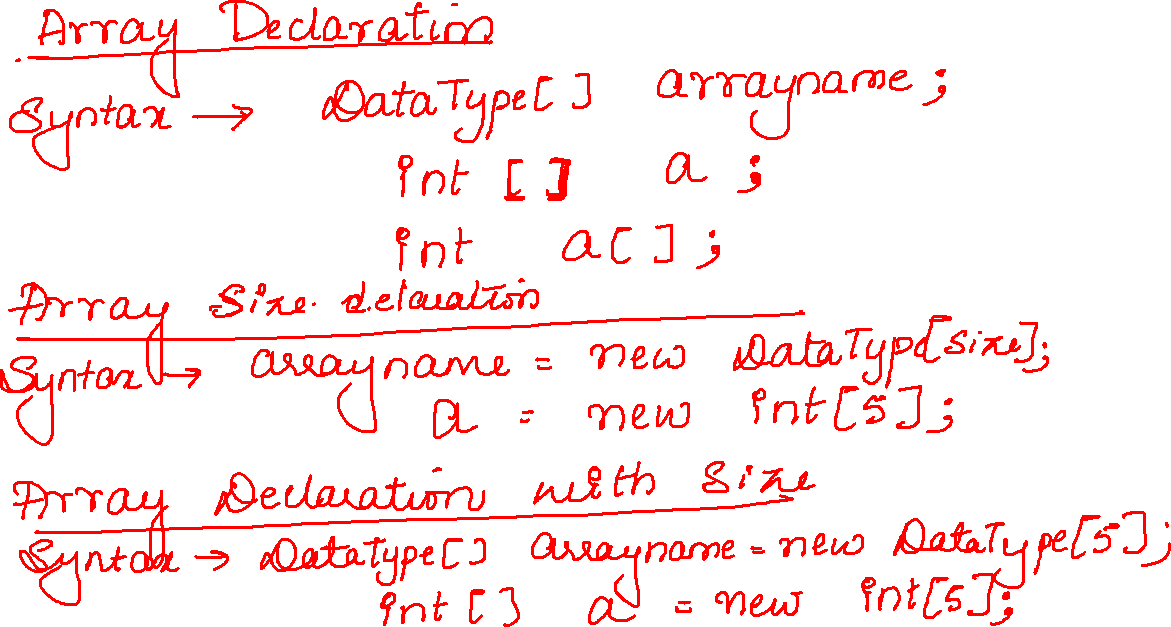 Array Declaration
Syntax → DataType[ ] arrayname;
int [ ] a ;
int a[ ] ;
Array Size declaration
Syntax → arrayname = new DataType[size];
a = new int[5];
Array Declaration with Size
Syntax → DataType[] arrayname = new DataType[5];
int [ ] a = new int[5];